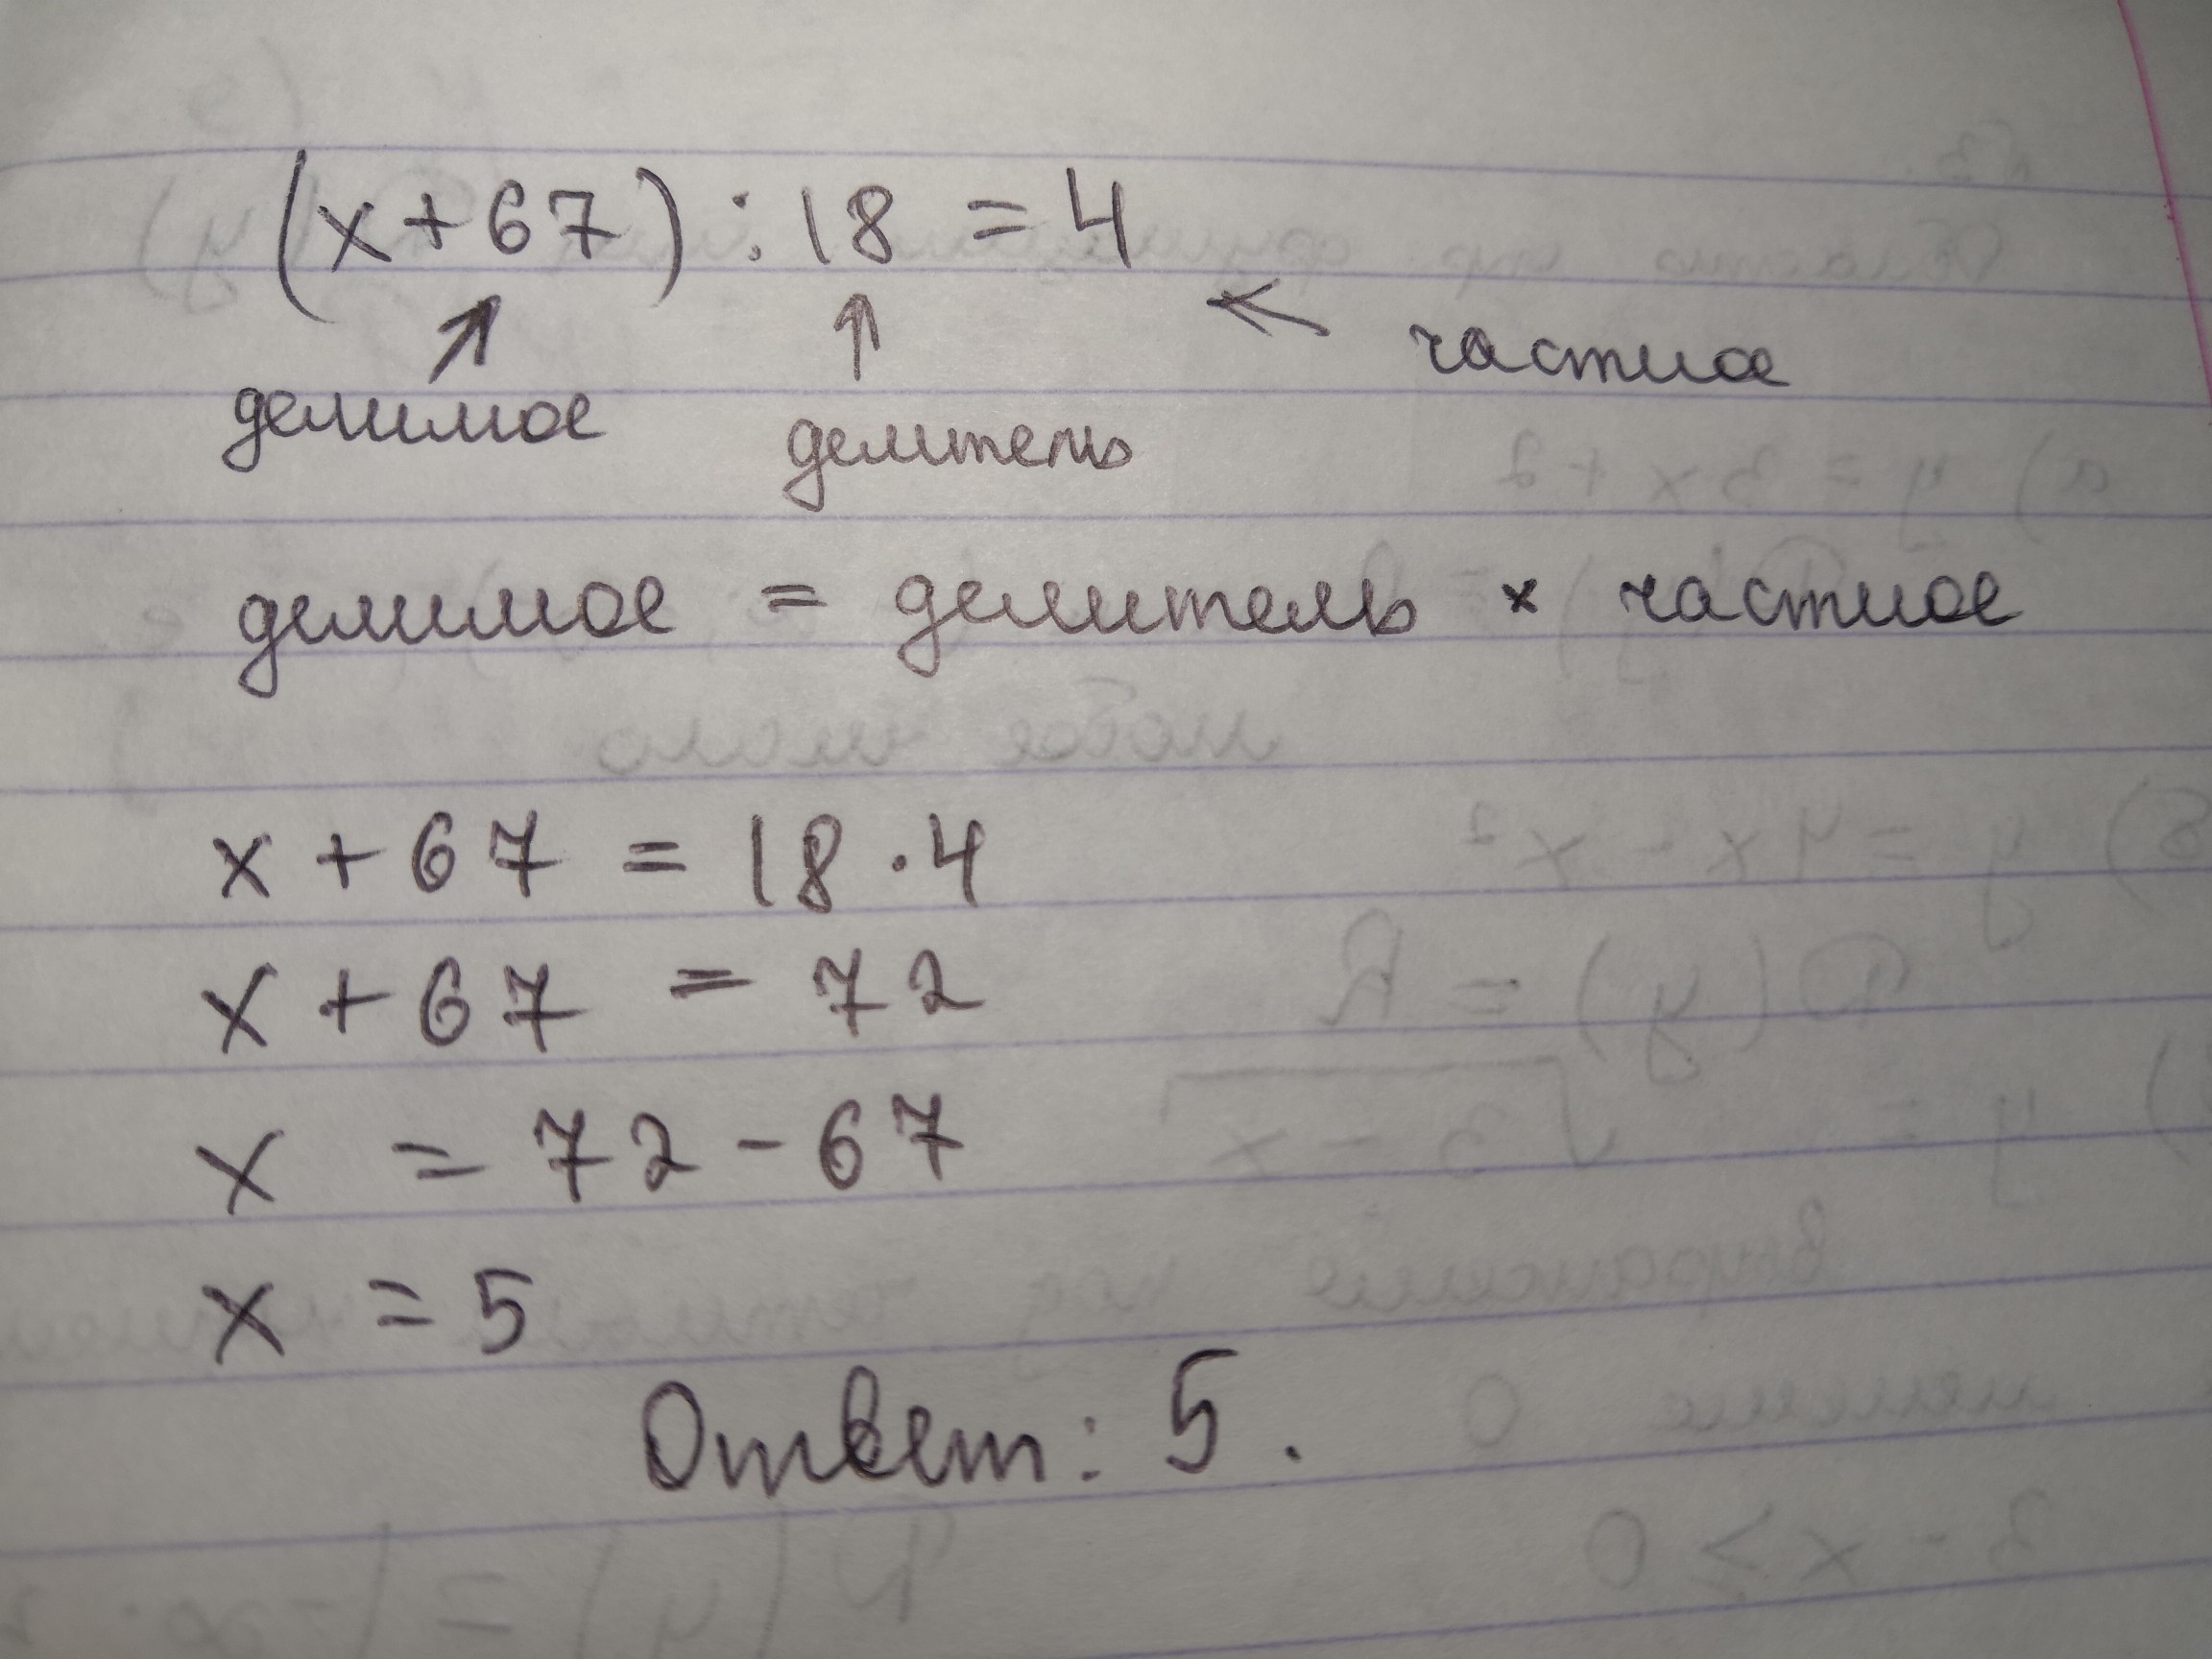 (x+67) : 18 = 4
частное
делимое делитель
делимое = делитель × частное
x + 67 = 18 · 4
x + 67 = 72
x = 72 - 67
x = 5
Ответ: 5.